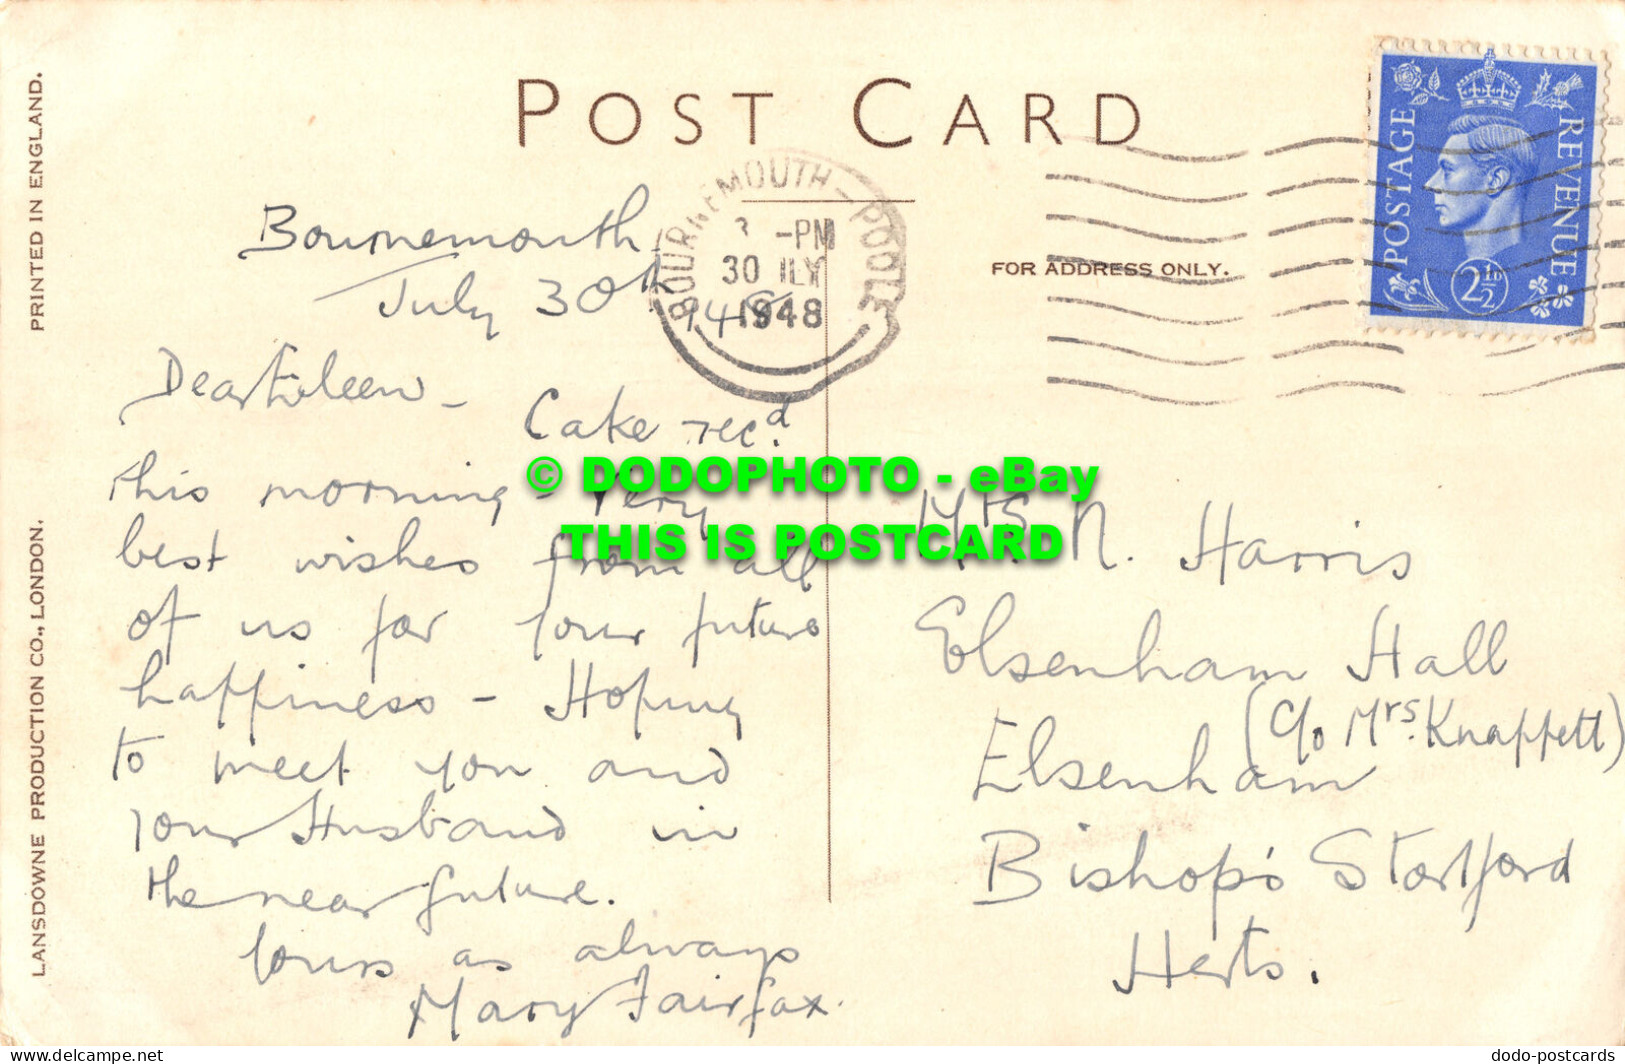 POST CARD
PRINTED IN ENGLAND.
LANSDOWNE PRODUCTION CO., LONDON.
FOR ADDRESS ONLY.
BOURNEMOUTH - POOLE
-PM
30 JLY
1948
POSTAGE
REVENUE
2½D
Bournemouth
July 30th
1948
Dear Eileen -
Cake recd.
this morning - Very
best wishes from all
of us for your future
happiness - Hoping
to meet you and
your Husband in
the near future.
Yours as always
Mary Fairfax.
Mrs. N. Harris
Elsenham Hall
(c/o Mrs. Knappett)
Elsenham
Bishop's Stortford
Herts.
© DODOPHOTO - eBay
THIS IS POSTCARD
www.delcampe.net
dodo-postcards